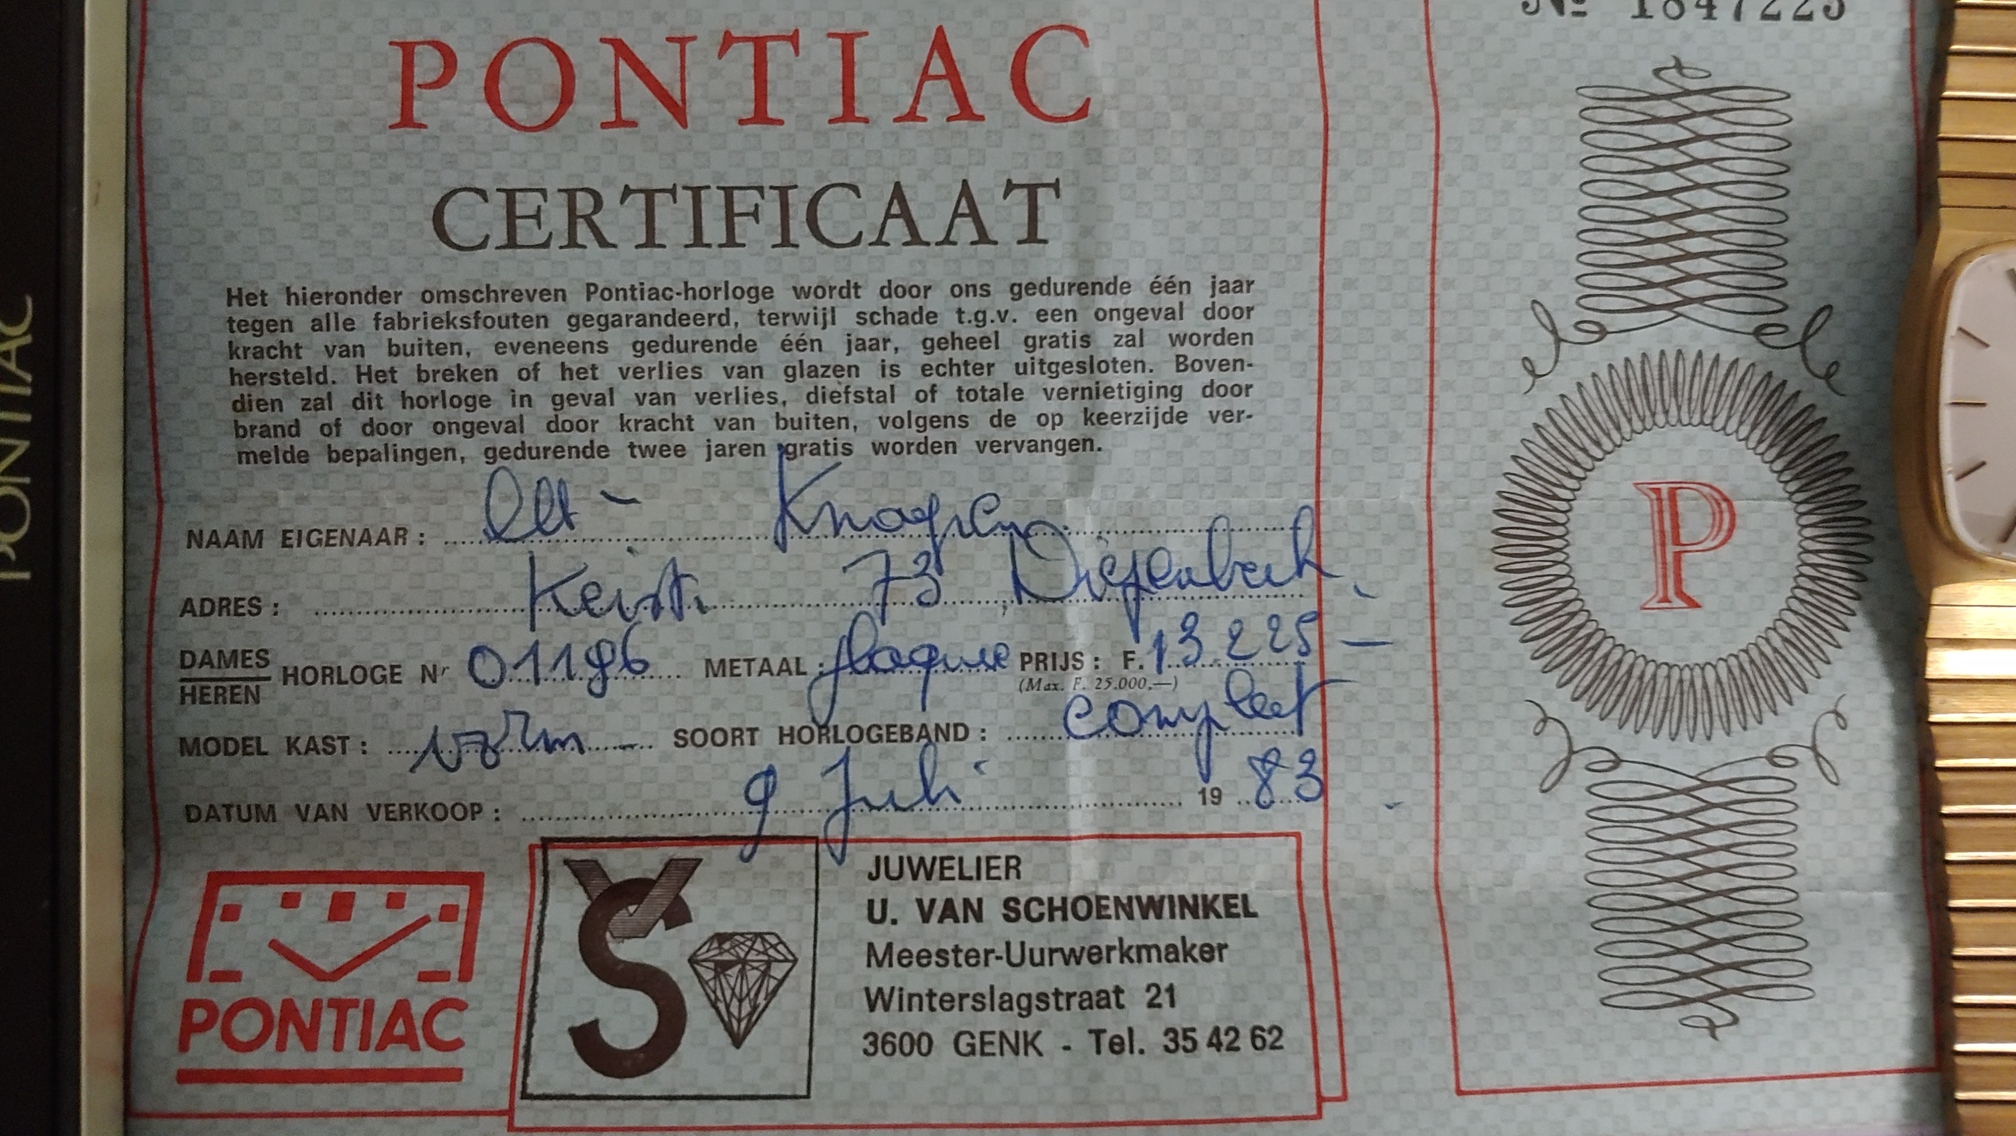 PONTIAC
CERTIFICAAT
Het hieronder omschreven Pontiac-horloge wordt door ons gedurende één jaar
tegen alle fabrieksfouten gegarandeerd, terwijl schade t.g.v. een ongeval door
kracht van buiten, eveneens gedurende één jaar, geheel gratis zal worden
hersteld. Het breken of het verlies van glazen is echter uitgesloten. Boven-
dien zal dit horloge in geval van verlies, diefstal of totale vernietiging door
brand of door ongeval door kracht van buiten, volgens de op keerzijde ver-
melde bepalingen, gedurende twee jaren gratis worden vervangen.
NAAM EIGENAAR :
ADRES : 73 Diepenbeek
DAMES
HEREN
HORLOGE Nr 01196 METAAL : PRIJS : F. 13225 —
(Max. F. 25.000.—)
MODEL KAST : vorm SOORT HORLOGEBAND : compleet
DATUM VAN VERKOOP : 9 Juli 19 83
PONTIAC
JUWELIER
U. VAN SCHOENWINKEL
Meester-Uurwerkmaker
Winterslagstraat 21
3600 GENK - Tel. 35 42 62
Nº 1847225
P
PONTIAC